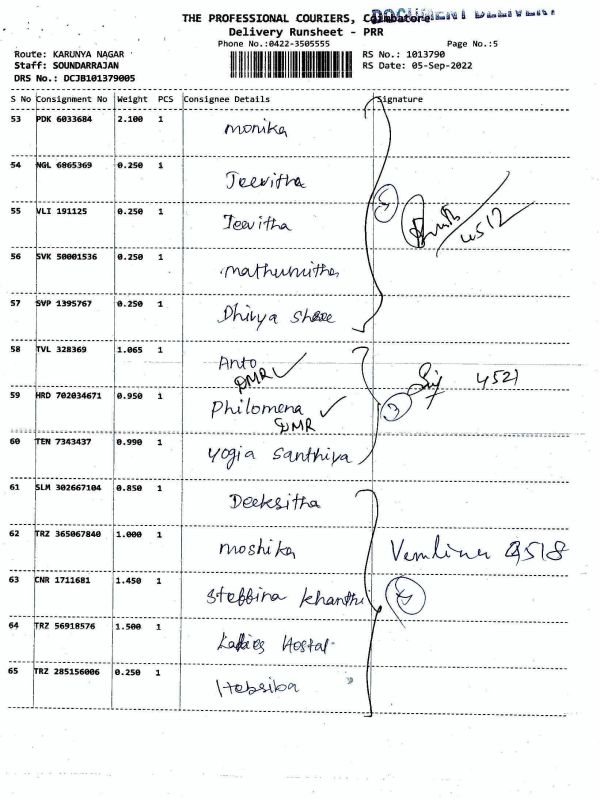 DOCUMENT DELIVERY
THE PROFESSIONAL COURIERS, Coimbatore
Delivery Runsheet - PRR
Phone No.:0422-3505555 Page No.:5
Route: KARUNYA NAGAR RS No.: 1013790
Staff: SOUNDARRAJAN RS Date: 05-Sep-2022
DRS No.: DCJB101379005
S No Consignment No Weight PCS Consignee Details Signature
53 PDK 6033684 2.100 1 monika
54 NGL 6065369 0.250 1 Jeevitha
55 VLI 191125 0.250 1 Jeevitha
4512
56 SVK 50001536 0.250 1 mathumitha
57 SVP 1395767 0.250 1 Dhivya Shree
58 TVL 328369 1.065 1 Anto
DMR 4521
59 HRD 702034671 0.950 1 Philomena
DMR
60 TEN 7343437 0.990 1 yogia santhiya
61 SLM 302667104 0.850 1 Deeksitha
62 TRZ 365067840 1.000 1 moshika
63 CNR 1711681 1.450 1 Steffina Khanthi
64 TRZ 56918576 1.500 1 Ladies Hostal
65 TRZ 285156006 0.250 1 Hebsiba